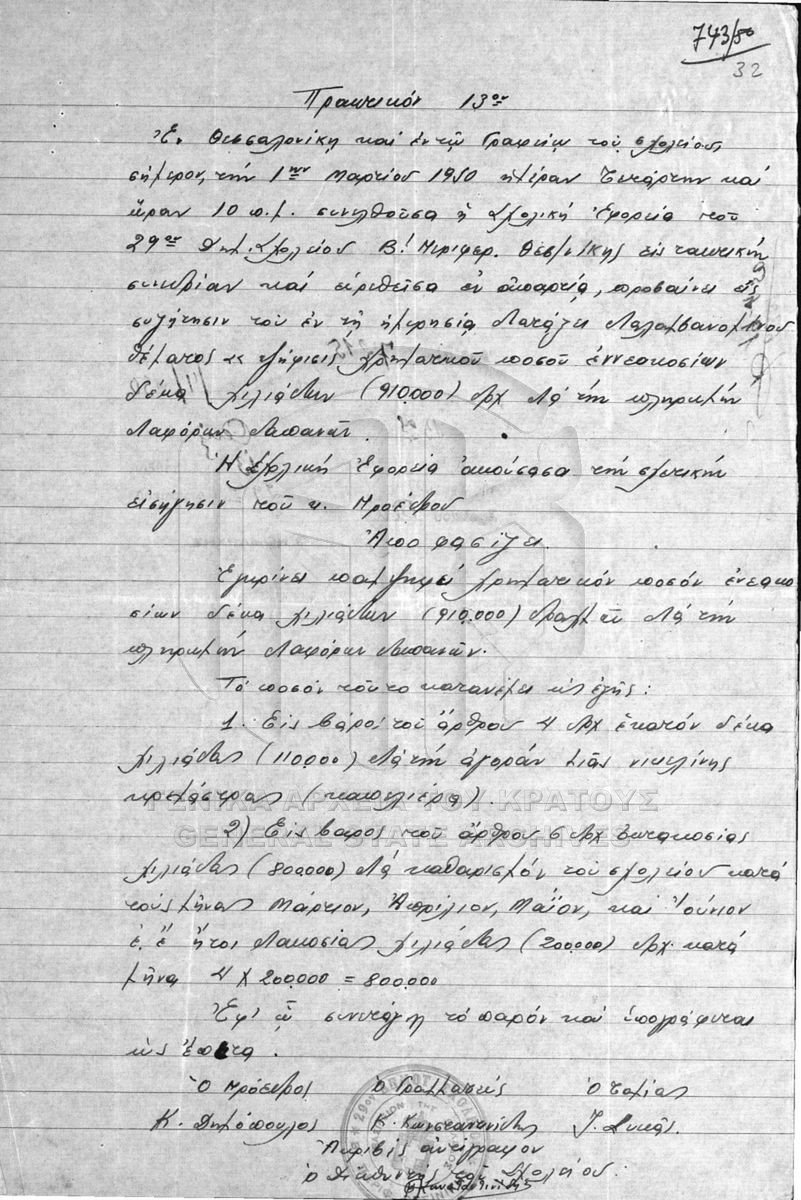 743/50
32
Πρακτικόν 13ον
Ἐν Θεσσαλονίκη καί ἐν τῷ Γραφείῳ τοῦ σχολείου
σήμερον, τήν 1ην Μαρτίου 1950 ἡμέραν Τετάρτην καί
ὥραν 10 π.μ. συνελθοῦσα ἡ Σχολική Ἐφορεία τοῦ
29ου Δημ. Σχολείου Β! Περιφερ. Θεσ/νίκης εἰς τακτικήν
συνεδρίαν καί εὑρεθεῖσα ἐν ἀπαρτίᾳ, προβαίνει εἰς
συζήτησιν τοῦ ἐν τῇ ἡμερησίᾳ διατάξει διαλαμβανομένου
θέματος "ψήφισις χρηματικοῦ ποσοῦ ἐννεακοσίων
δέκα χιλιάδων (910.000) δρχ διά τήν πληρωμήν
διαφόρων δαπανῶν.
Ἡ Σχολική Ἐφορεία ἀκούσασα τήν σχετικήν
εἰσήγησιν τοῦ κ. Προέδρου
Ἀποφασίζει
Ἐγκρίνει παμψηφεί χρηματικόν ποσόν ἐνεακο
σίων δέκα χιλιάδων (910.000) δραχμῶν διά τήν
πληρωμήν διαφόρων δαπανῶν.
Τό ποσόν τοῦτο κατανέμει ὡς ἑξῆς:
1. Εἰς βάρος τοῦ ἄρθρου 4 δρχ ἑκατόν δέκα
χιλιάδας (110.000) διά τήν ἀγοράν μιᾶς νικελίνης
κρεμάστρας (καπελιέρα).
ΓΕΝΙΚΑ ΑΡΧΕΙΑ ΤΟΥ ΚΡΑΤΟΥΣ
GENERAL STATE ARCHIVES
2) Εἰς βάρος τοῦ ἄρθρου 6 δρχ ὀκτακοσίας
χιλιάδας (800.000) διά καθαρισμόν τοῦ σχολείου κατά
τούς μῆνας Μάρτιον, Ἀπρίλιον, Μάϊον, καί Ἰούνιον
ἐ. ἔ ἤτοι διακοσίας χιλιάδας (200.000) δρχ. κατά
μῆνα 4 Χ 200.000 = 800.000
Ἐφ' ᾧ συνετάγη τό παρόν καί ὑπογράφεται
ὡς ἕπεται.
Ὁ Πρόεδρος Ὁ Γραμματεύς Ὁ Ταμίας
Κ. Δημόπουλος Β. Κωνσταντινίδης Γ. Συκᾶς.
Ἀκριβές ἀντίγραφον
Ὁ Διευθυντής τοῦ Σχολείου